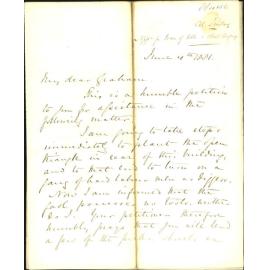 June 4th 1881.
My dear Graham
This is a humble petition
to you for assistance in the
following matter.
I am going to take steps
immediately to plant the open
triangle in rear of this building,
and to that end to turn in a
gang of hard labour men as diggers.
Now I am informed that the
Gaol possesses no tools. Unless
Your petitioner therefore
humbly prays that you will lend
a few of the